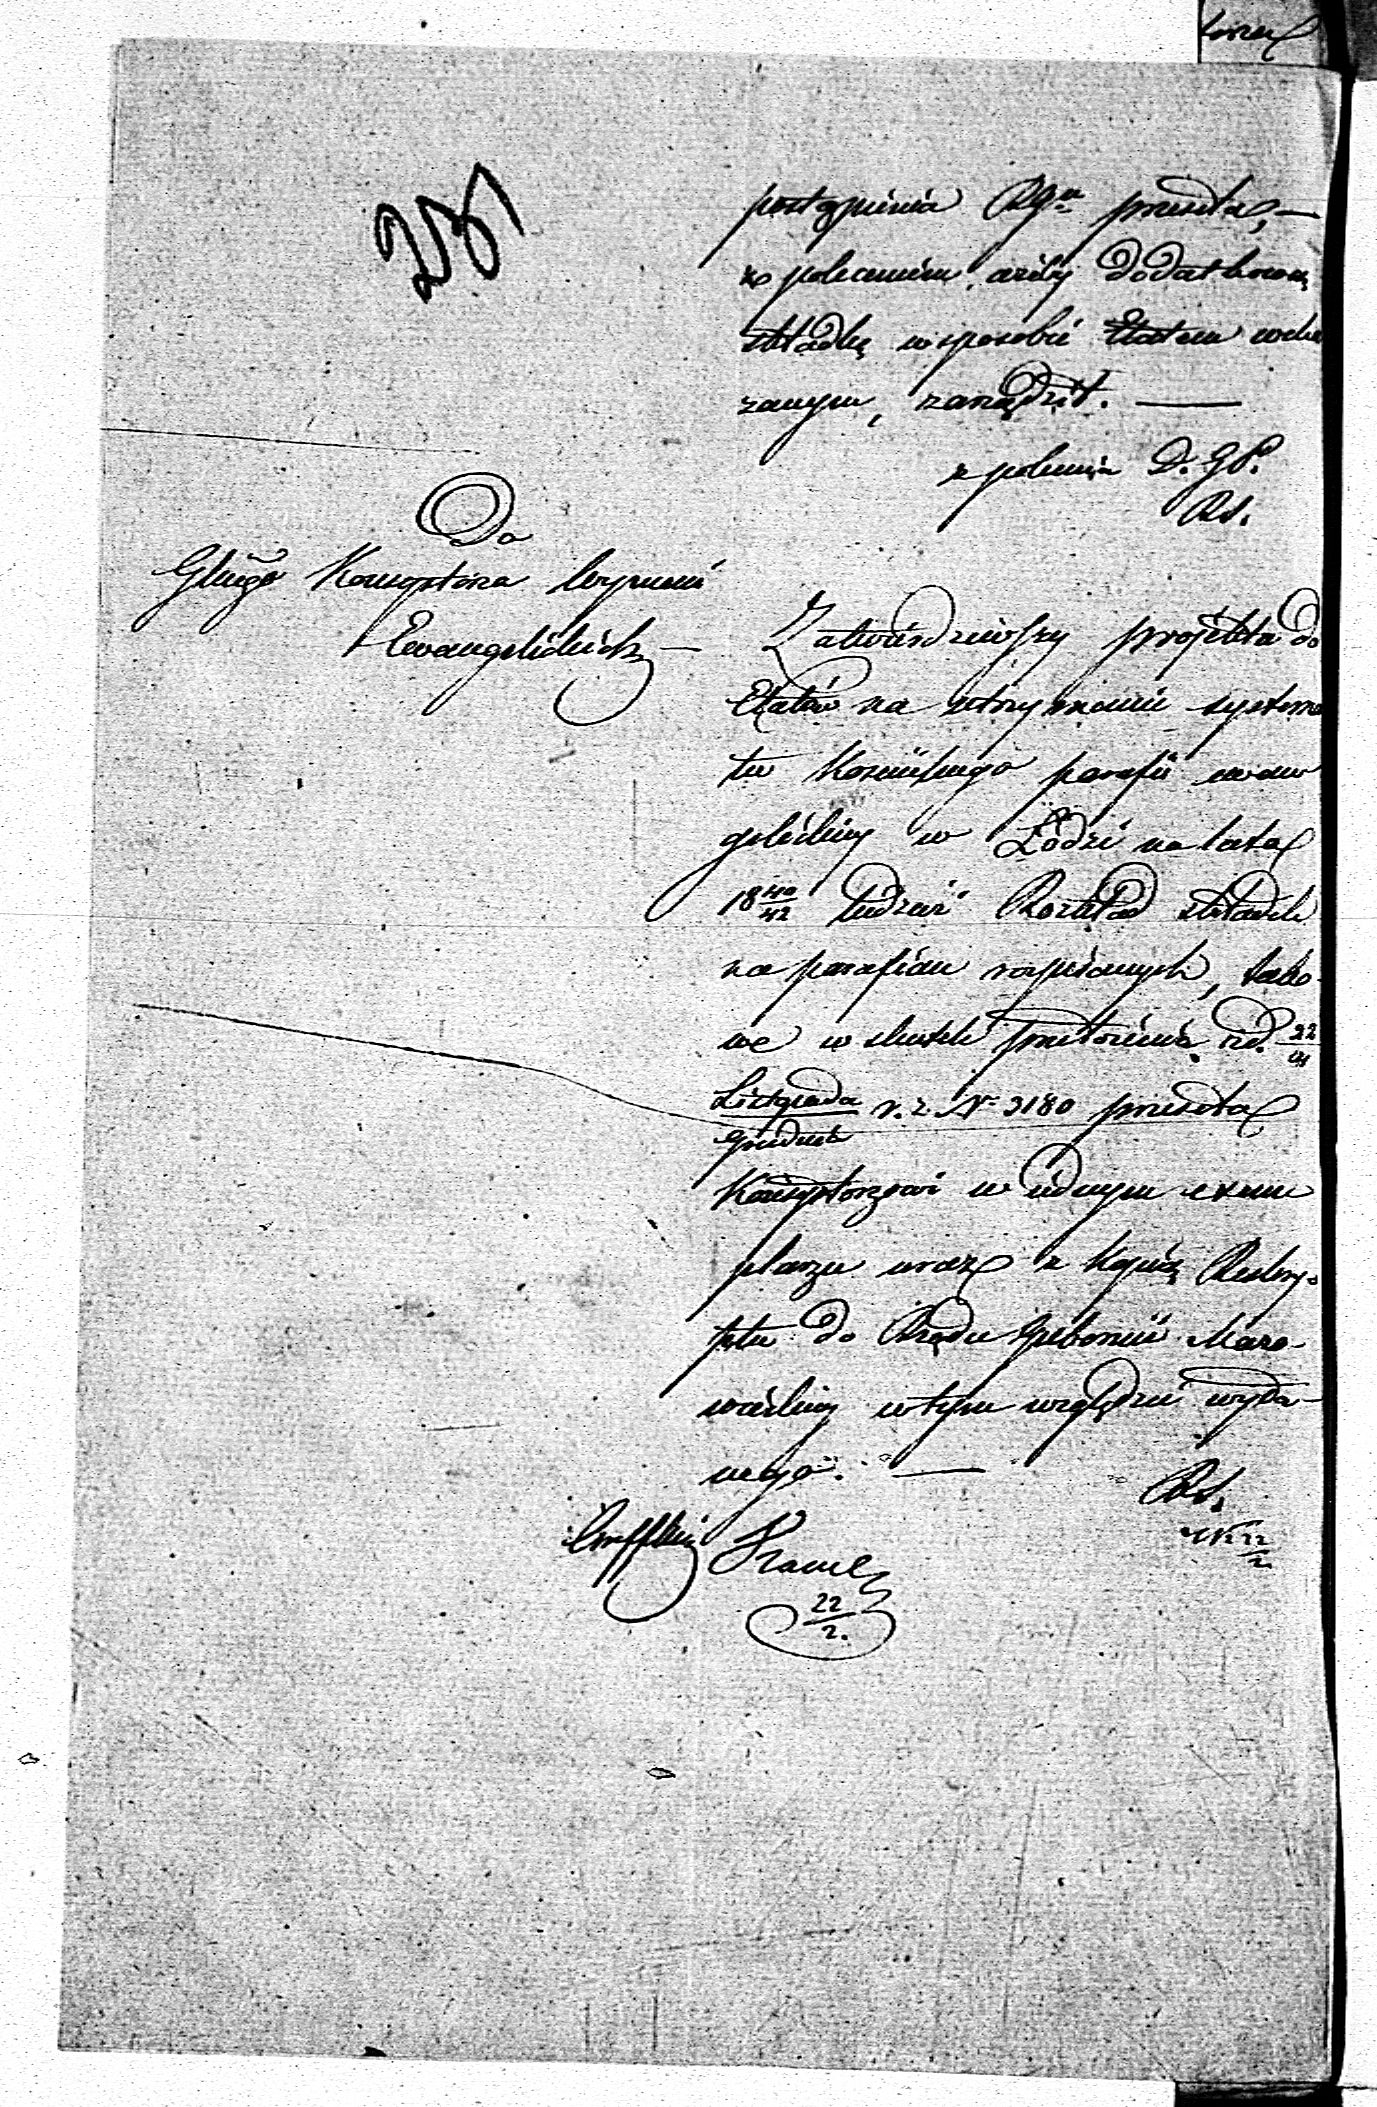 231
postąpienia RGu przesła,—
z poleceniem, ażeby dodatkową
składkę w sposobie Etatem wska
zanym, zarządził. —
z polecenia D. G. P.
Rs.
Do
Głłgo Konsystorza Wyznań
Ewangelickich —
Zatwierdziwszy projekta do
Etatów na utrzymanie systema
tu Kościelnego parafii ewan
gelickiey w Łodzi na lata
18 40/42 tudzież Rozkład składek
na parafian rozpisanych, tako-
we w skutek przełożenia z d. 22
Listopada/Grudnia r. z. N 3180 przesła
Konsystorzowi w iednym exem
plarzu wraz z kopią Reskry-
ptu do Rządu Gubernii Mazo-
wieckiey w tym względzie wyda-
nego. —
Rs.
22/2
22/2.